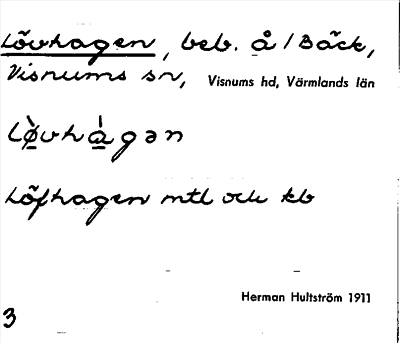 Lövhagen, beb. å /Bäck,
Visnums sn, Visnums hd, Värmlands län
Lø̀vhàgən
Löfhagen mtl och kb
Herman Hultström 1911
3